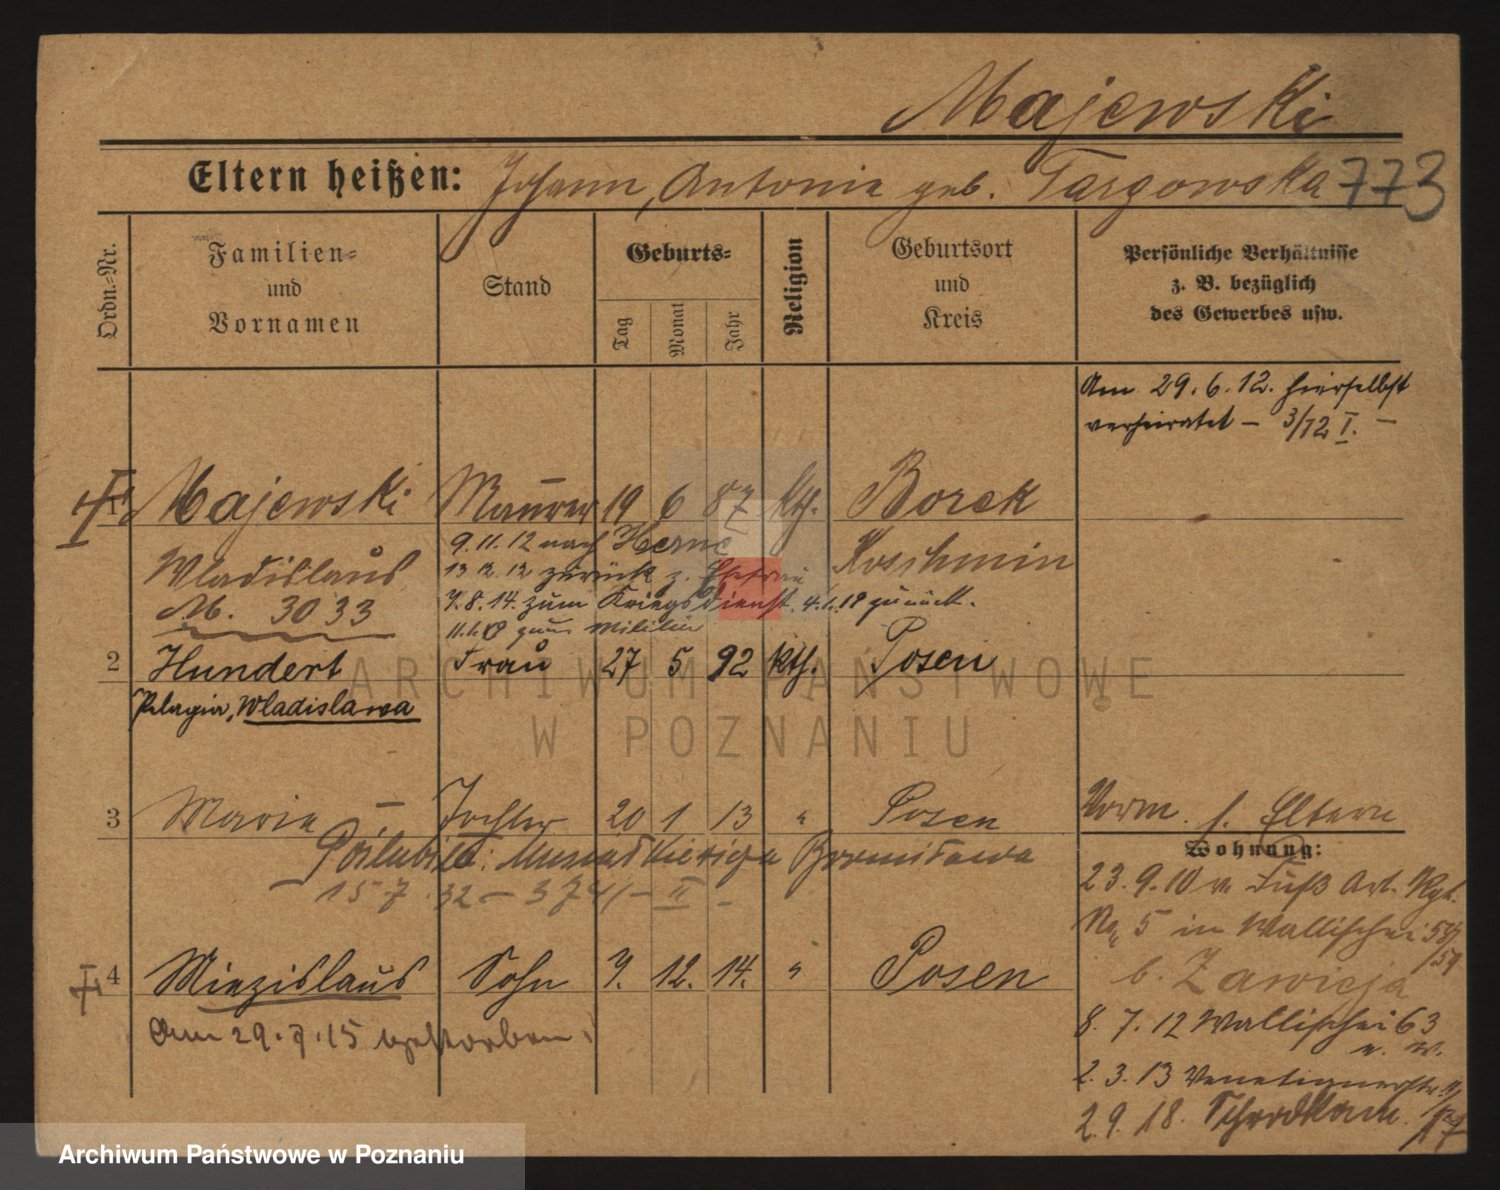 Majewski
Eltern heißen: Johann, Antonie geb. Targowska 773
Ordn.-Nr.
Familien-
und
Vornamen
Stand
Geburts-
Tag
Monat
Jahr
Religion
Geburtsort
und
Kreis
Persönliche Verhältnisse
z. B. bezüglich
des Gewerbes usw.
Am 29.6.12. hierselbst
verheiratet – 3/12 I. –
Majewski Maurer 19 6 87 kth. Borek
Wladislaus Koschmin
M. 3033
9.11.12 nach Herne
13 12.12 zurück z. Ehefrau
7.8.14. zum Kriegsdienst. 4.1.19 zurück.
11.1.19 zum Militär
2 Hundert Frau 27 5 92 kth. Posen
Pelagia, Wladislawa
3 Marie Tochter 20 1 13 " Posen
Vorm. s. Eltern
15 7. 32 – 3741 – II –
Wohnung:
23.9.10 v. Fuß Art. Rgt.
No 5 in Wallischei 58/59
b. Zawieja
4 Miezislaus Sohn 7. 12. 14. " Posen
Am 29.7.15 verstorben.
8.7.12 Wallischei 63
2.3.13 Venetianerstr.
2.9.18. Schrodkam.
ARCHIWUM PAŃSTWOWE
W POZNANIU
Archiwum Państwowe w Poznaniu